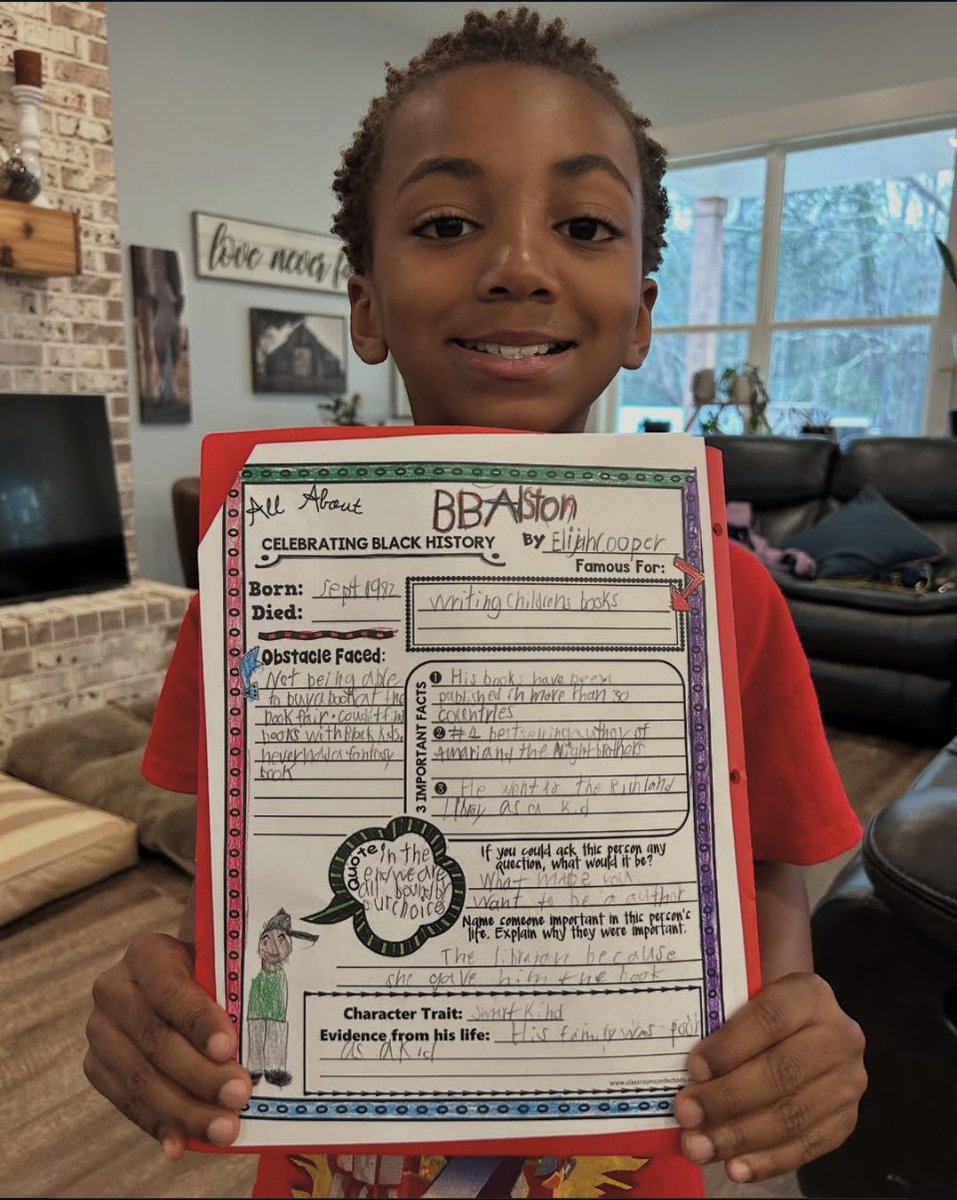 love never f
All About BBAlston
CELEBRATING BLACK HISTORY
By Elijah Cooper
Born: Sept 1982
Died:
Famous For:
Writing Childrens books
Obstacle Faced:
Not being able
to buy a book at the
book fair. coud it find
books with Black kids.
never had a fantasy
book
3 IMPORTANT FACTS
1 His books have been
published in more than 30
countries
2 #1 bestselling author of
Amari and the Night brothers
3 He went to the Richland
library as a kid
Quote:
in the
end we are
all bound by
our choices
If you could ask this person any
question, what would it be?
What made you
want to be a author
Name someone important in this person's
life. Explain why they were important.
The librarian because
she gave him the book
Character Trait: smart kind
Evidence from his life: His family was poor
as a kid
www.classroomconfections.